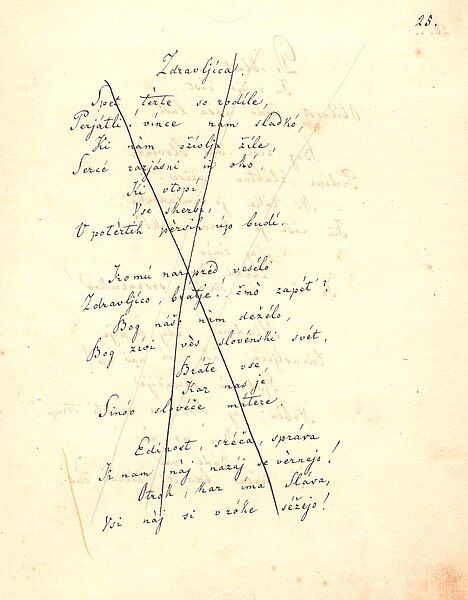 25.
Zdravljica.
Spet tèrte so rodile,
Perjátli, vince nam sladkó,
Ki nàm ožívlja žile,
Sercé razjásni in okó,
Ki vtopí
Vse skerbí,
V potèrtih pèrsih úp budí.
Komú nar préd veselo
Zdravljico, bratje! čmò zapét'?
Bog náše nam deželo,
Bog živi vès slovénski svét,
Bráte vse,
Kar nas je
Sinóv slovéče matere.
Edinost, sréča, správa
K nam nàj nazáj se vèrnejo!
Otrók, kar ima Sláva,
Vsi nàj si v róke séžejo!